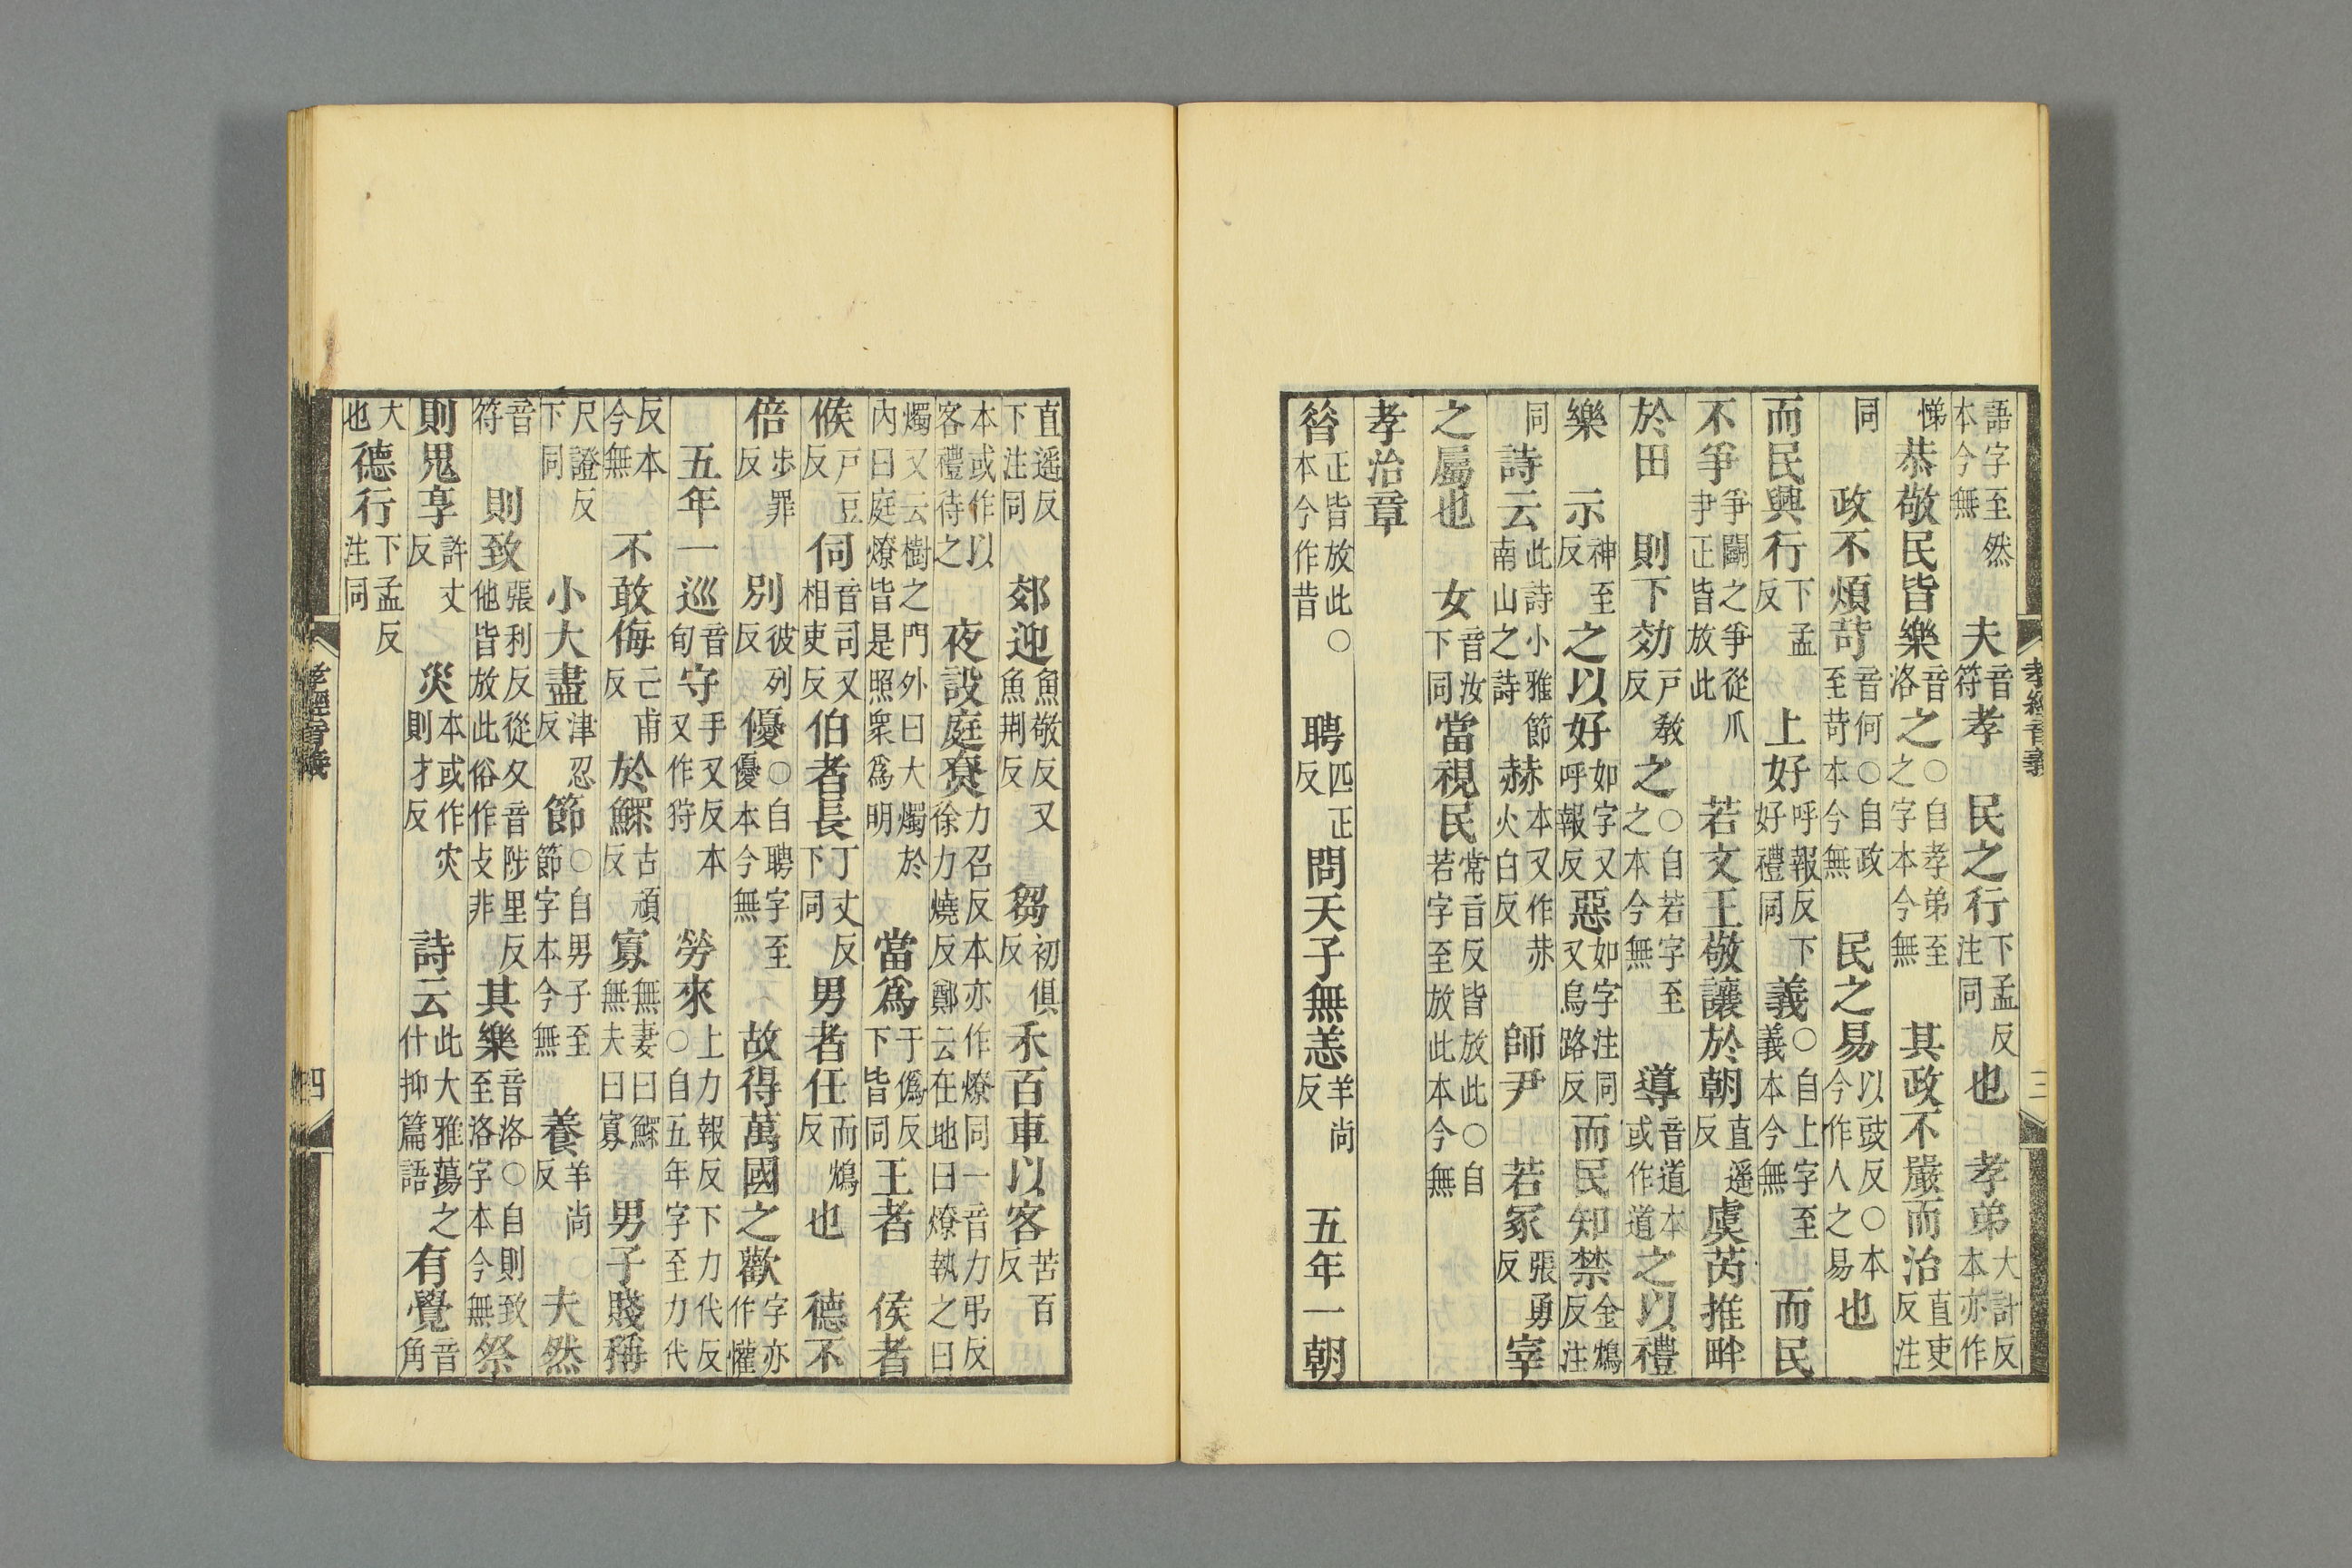 語字至然本今無　夫音符孝　民之行下孟反注同也　孝弟大計反本亦作
悌恭敬民皆樂音洛之○自孝弟至之字本今無　其政不嚴而治直吏反注
同　政不煩苛音何○自政至苛本今無　民之易以豉反○本今作人之易也
而民興行下孟反　上好呼報反下好禮同　義○自上字至義本今無　而民
不爭爭鬭之爭從爪尹正皆放此　若文王敬讓於朝直遥反虞芮推畔
於田　則下効戶教反之○自若字至之本今無　導音道本或作道之以禮
樂　示神至反之以好如字又呼報反惡如字注同又烏路反而民知禁金鴆反注
同　詩云此詩小雅節南山之詩赫本又作赤火白反　師尹　若冢張勇反宰
之屬也　女音汝下同當視民常音反皆放此○自若字至放此本今無
孝治章
昝正皆放此○本今作昔　聘匹正反問天子無恙羊尚反　五年一朝
孝經音義　三
直遥反下注同　郊迎魚敬反又魚荆反　芻初俱反禾百車以客苦百反
本或作以客禮待之　夜設庭寮力召反本亦作燎同一音力弔反徐力燒反鄭云在地曰燎執之曰
燭又云樹之門外曰大燭於內曰庭燎皆是照衆爲明　當爲于僞反下皆同王者　侯者
候戶豆反　伺音司又相吏反伯者長丁丈反下同　男者任而鴆反也　德不
倍步罪反　別彼列反　優○自聘字至優本今無　故得萬國之歡字亦作懽
五年一巡音旬守手又反本又作狩　勞來上力報反下力代反○自五年字至力代
反本今無　不敢侮亡甫反於鰥古頑反寡無妻曰鰥無夫曰寡　男子賤稱
尺證反下同　小大盡津忍反節○自男子至節字本今無　養羊尚反　夫然
音符　則致張利反從夂音陟里反他皆放此俗作攴非其樂音洛○自則致至洛字本今無祭
則鬼享許丈反　災本或作灾則才反　詩云此大雅蕩之什抑篇語有覺音角
大也德行下孟反注同
孝經音義　四